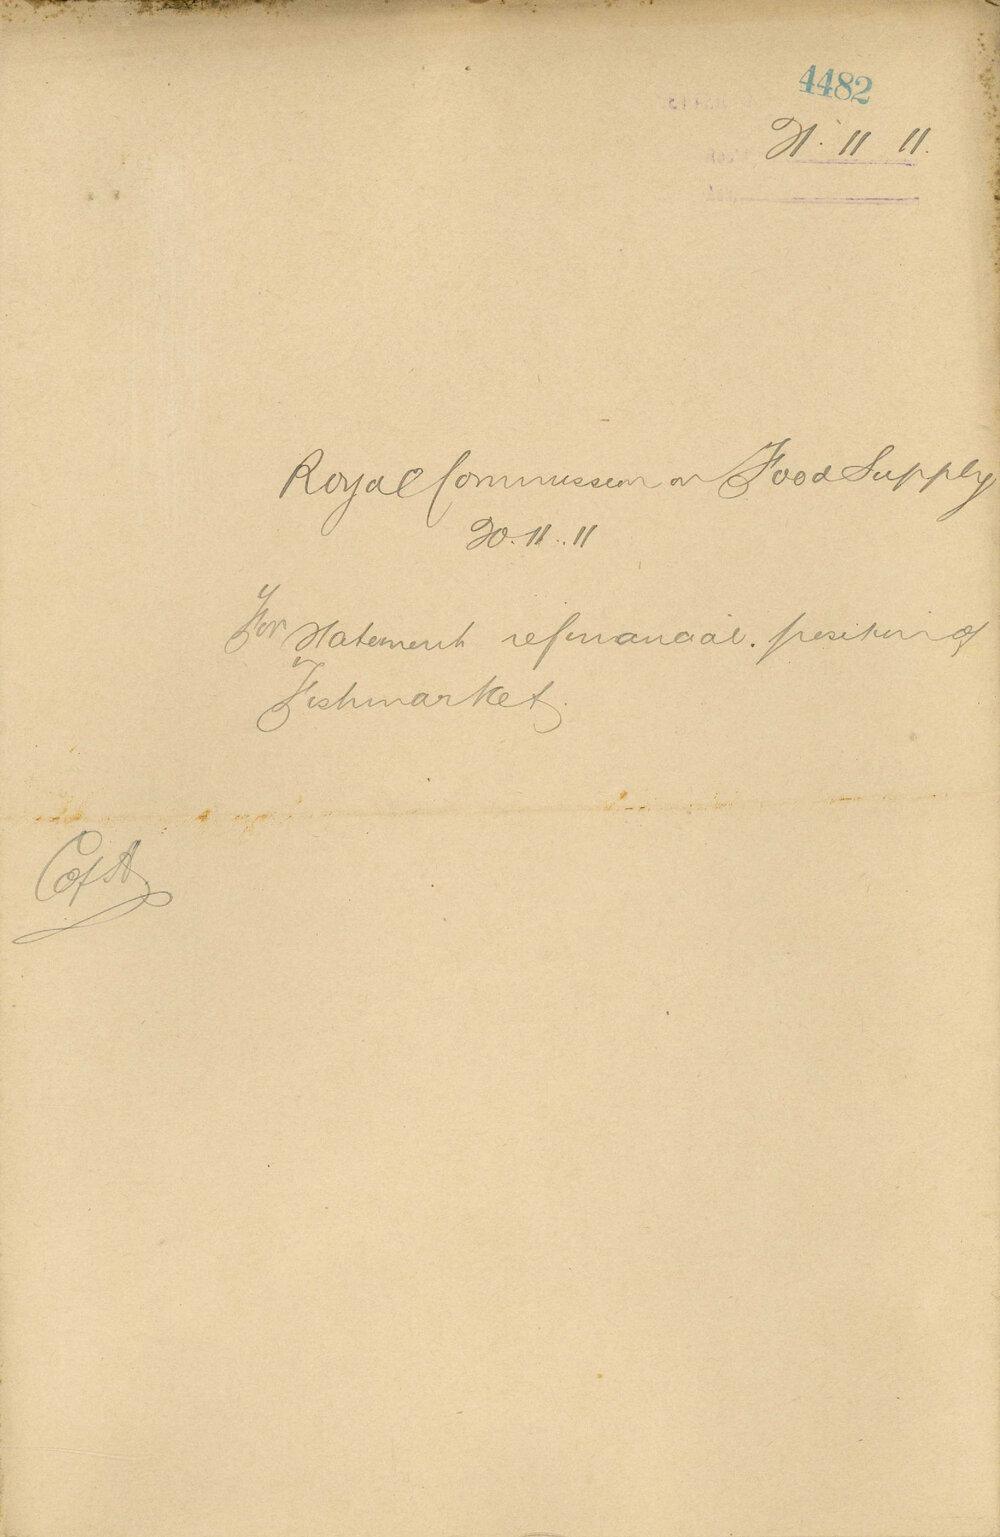 4482
21. 11 11.
Royal Commission on Food Supply
20. 11. 11
For Statement re financial position of
Fishmarket.
C of A